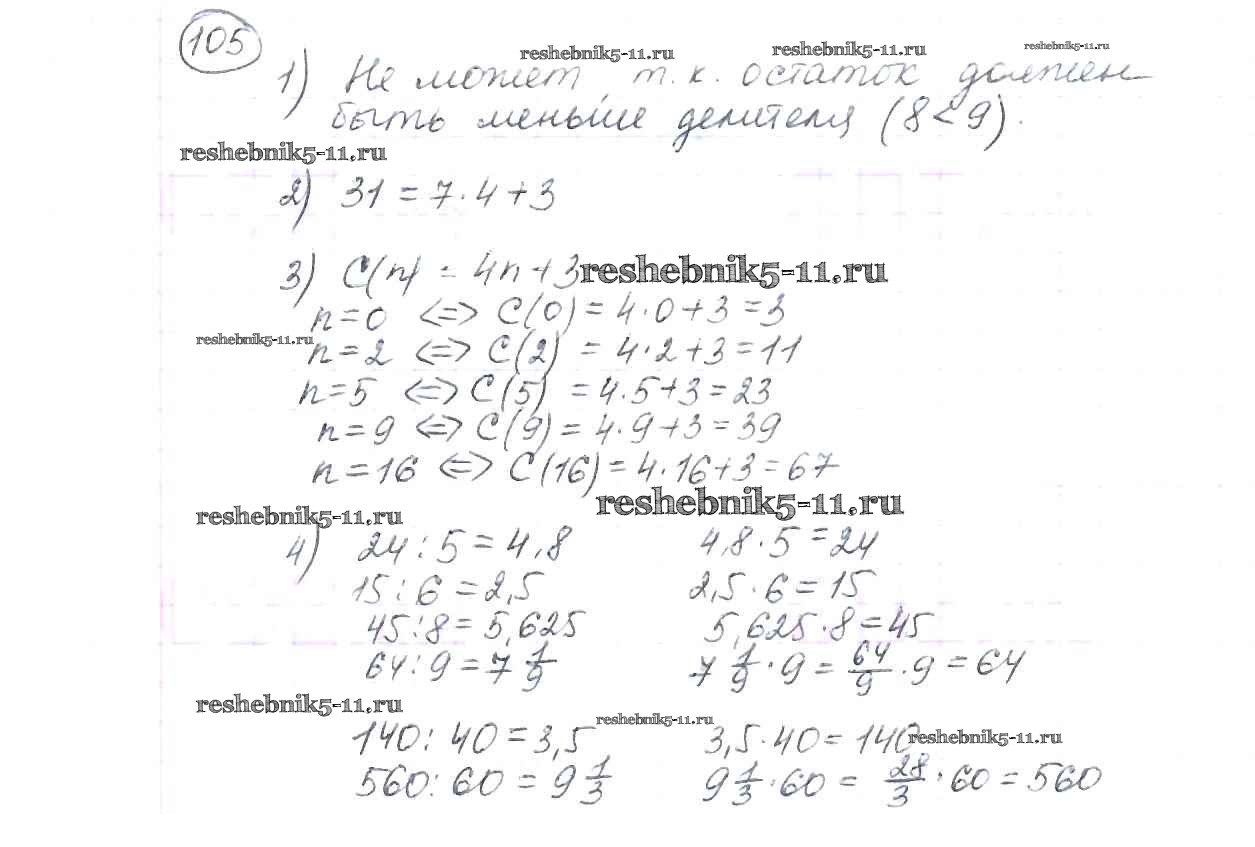 105
reshebnik5-11.ru reshebnik5-11.ru reshebnik5-11.ru
1) Не может, т.к. остаток должен
быть меньше делителя (8<9).
reshebnik5-11.ru
2) 31 = 7·4+3
3) C(n) = 4n+3 reshebnik5-11.ru
n=0 <=> C(0) = 4·0+3=3
reshebnik5-11.ru
n=2 <=> C(2) = 4·2+3=11
n=5 <=> C(5) = 4·5+3=23
n=9 <=> C(9) = 4·9+3=39
n=16 <=> C(16)=4·16+3=67
reshebnik5-11.ru reshebnik5-11.ru
4) 24:5=4,8 4,8·5=24
15:6=2,5 2,5·6=15
45:8=5,625 5,625·8=45
64:9=7 1/9 7 1/9·9=64/9·9=64
reshebnik5-11.ru reshebnik5-11.ru
140:40=3,5 3,5·40=140 reshebnik5-11.ru
560:60=9 1/3 9 1/3·60=28/3·60=560